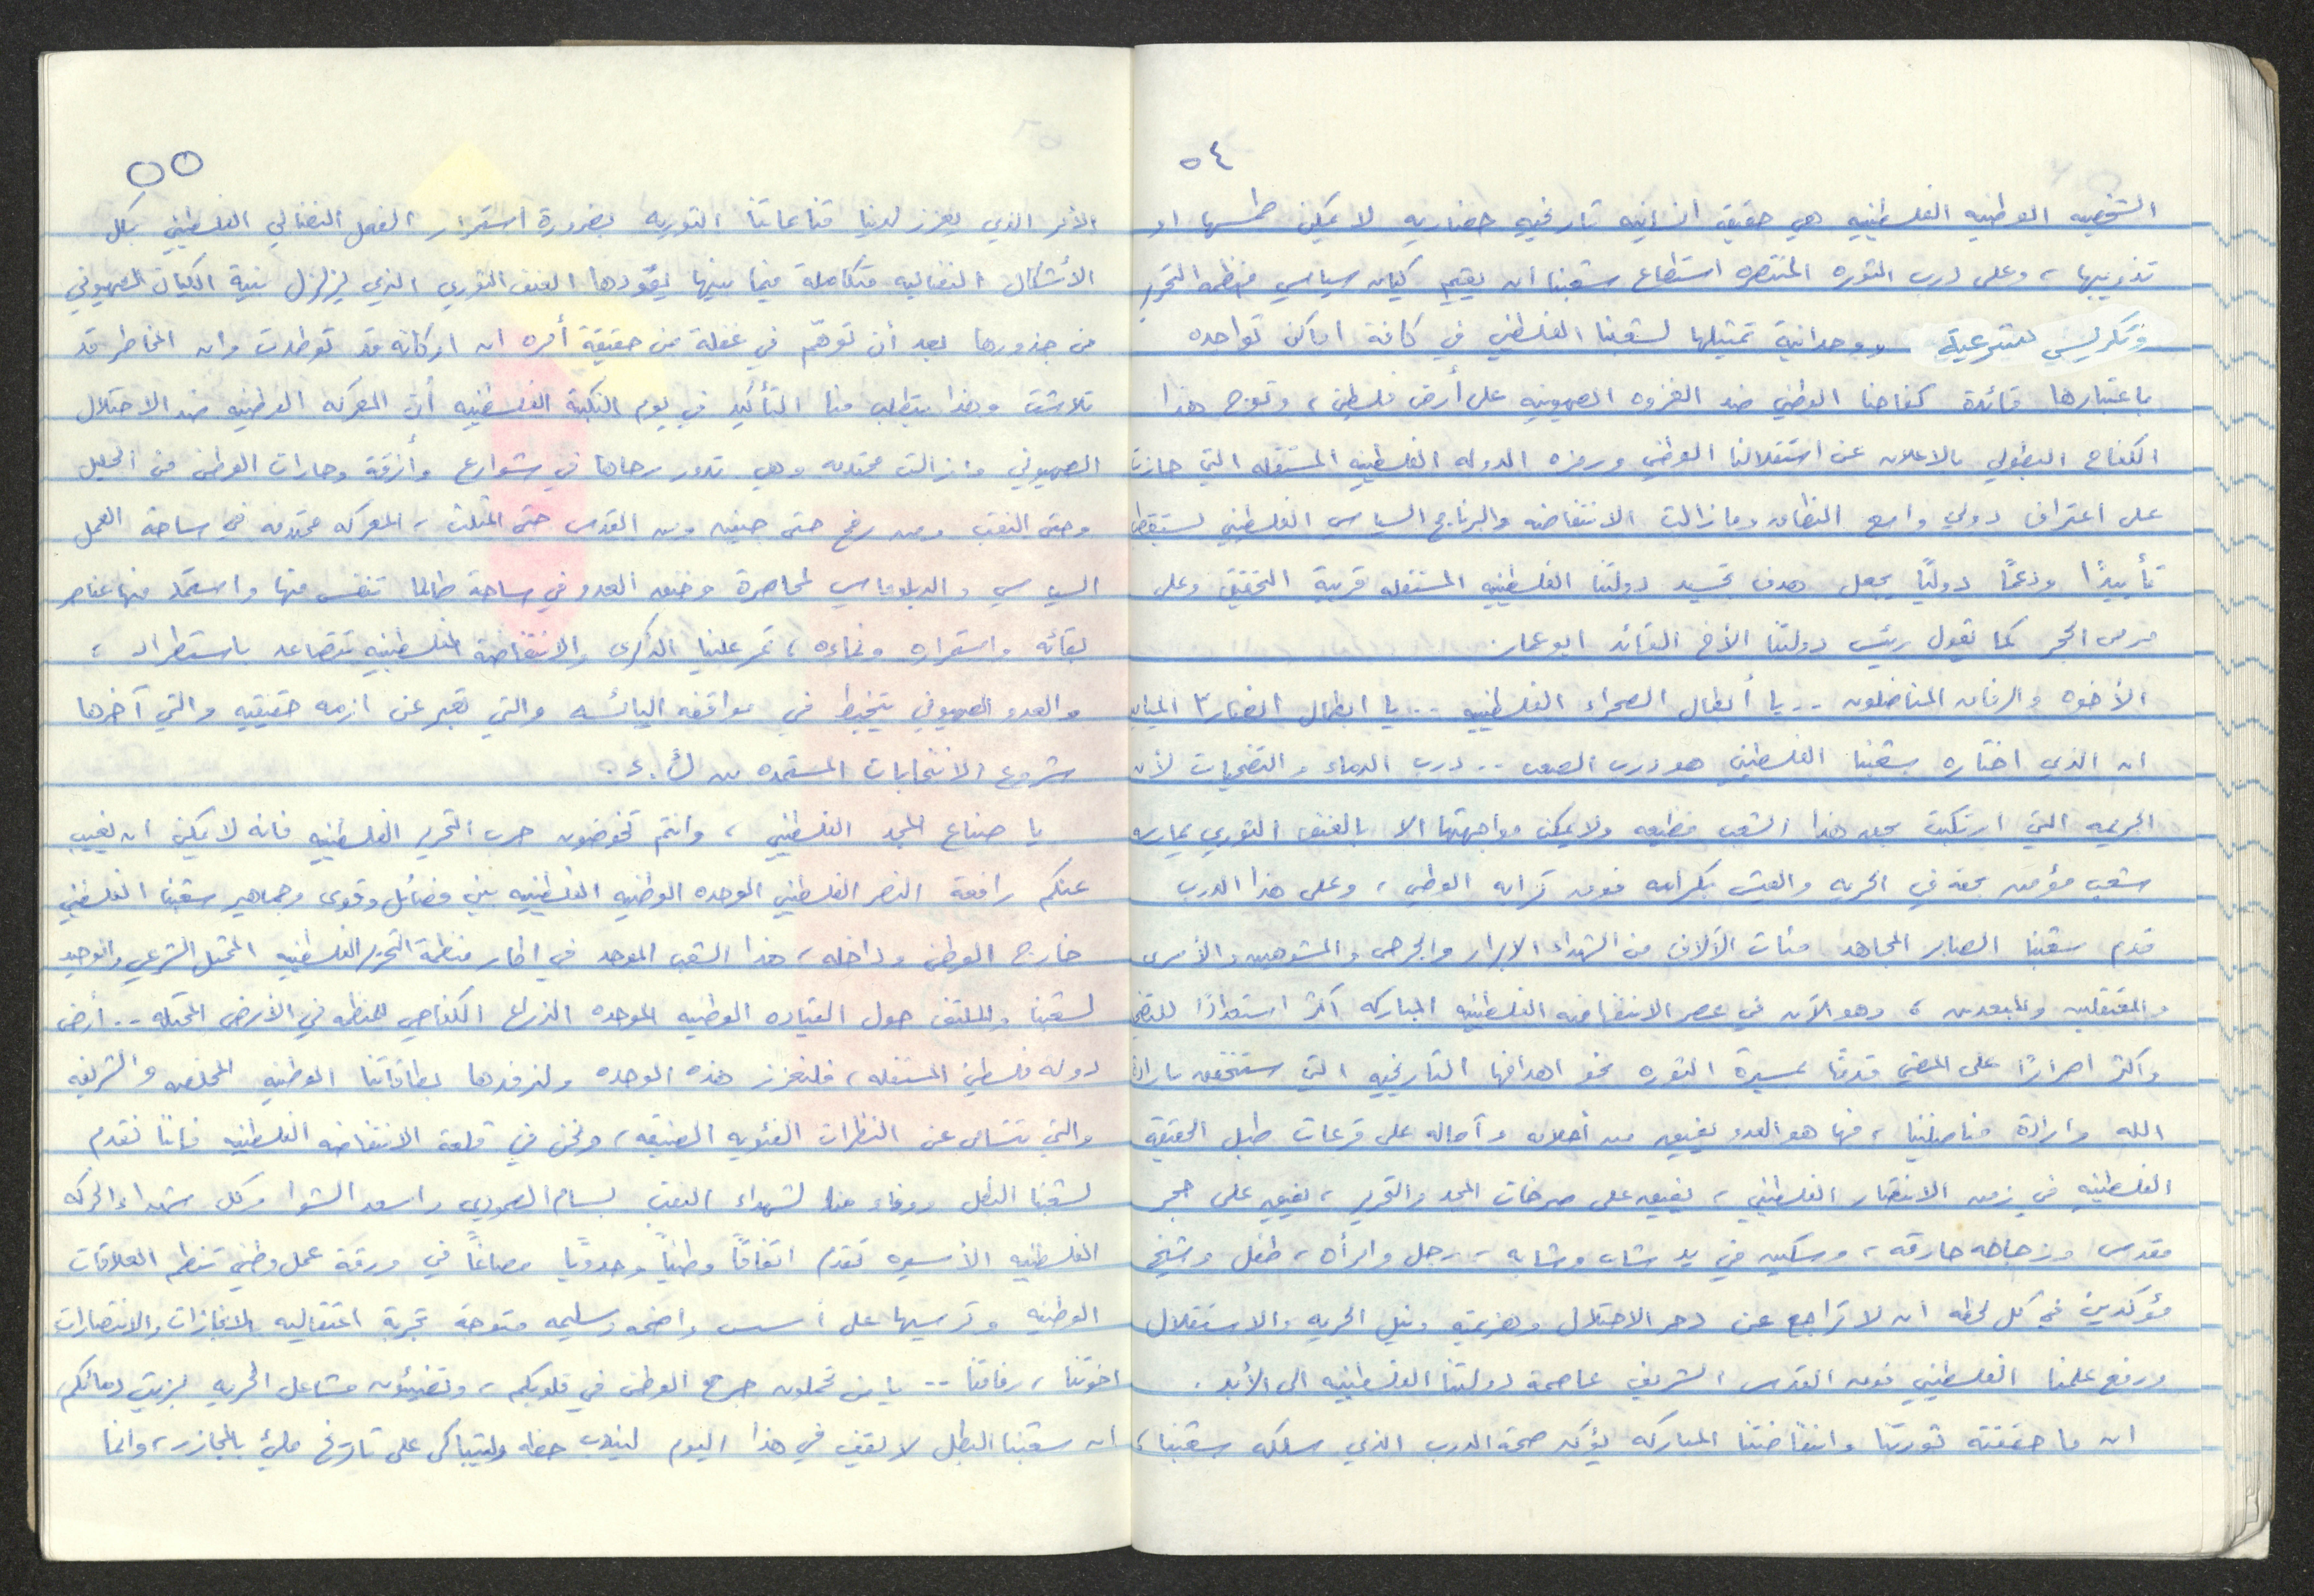 ٥٤
الشخصيه الوطنيه الفلسطينيه هي حقيقة انسانيه تاريخيه حضاريه لا يمكن طمسها او
تذويبها ، وعلى درب الثوره المنتصره استطاع شعبنا ان يقيم كيان سياسي منظمة التحرير
وتكريس لشرعية ووحدانية تمثيلها لشعبنا الفلسطيني في كافة اماكن تواجده
باعتبارها قائدة كفاحنا الوطني ضد الغزوه الصهيونيه على أرض فلسطين ، وتوج هذا
الكفاح البطولي بالاعلان عن استقلالنا الوطني ورمزه الدوله الفلسطينيه المستقله التي حازت
على اعتراف دولي واسع النطاق ومازالت الانتفاضه والبرنامج السياسي الفلسطيني يستقطب
تأييدًا ودعمًا دوليًا يجعل هدف تجسيد دولتنا الفلسطينيه المستقله قريبة التحقيق وعلى
مرمى الحجر كما يقول رئيس دولتنا الأخ القائد ابوعمار.
الأخوه والرفاق المناضلون .. يا أبطال الصحراء الفلسطينيه .. يا ابطال انصار ٣
ان الذي اختاره شعبنا الفلسطيني هو درب الصعب .. درب الدماء والتضحيات لأن
الجريمه التي ارتكبت بحق هذا الشعب فظيعه ولا يمكن مواجهتها الا بالعنف الثوري يمارسه
شعب مؤمن بحقه في الحريه والعيش بكرامه فوق ترابه الوطني ، وعلى هذا الدرب
قدم شعبنا الصابر المجاهد مئات الآلاف من الشهداء الابرار والجرحى والمشوهين والأسرى
والمعتقلين والمبعدين ، وهو الآن في عصر الانتفاضه الفلسطينيه المباركه أكثر استعدادًا للتضحية
واكثر اصرارًا على المضي قدمًا بمسيرة الثوره نحو اهدافها التاريخيه التي ستتحقق بارادة
الله وارادة مناضلينا ، فها هو العدو يفيق من أحلامه وآماله على قرعات طبل الحقيقة
الفلسطينيه في زمن الانتصار الفلسطيني ، يفيق على صرخات المجد والتحرير ، يفيق على حجر
مقدس وزجاجه حارقه ، وسكين في يد شاب وشابه ، رجل وامرأه ، طفل وشيخ
مؤكدين في كل لحظه ان لا تراجع عن دحر الاحتلال وهزيمته ونيل الحريه والاستقلال
ورفع علمنا الفلسطيني فوق القدس الشريف عاصمة دولتنا الفلسطينيه الى الأبد .
ان ما حققته ثورتنا وانتفاضتنا المباركه يؤكد صحة الدرب الذي سلكه شعبنا ،
٥٥
الأمر الذي يعزز لدينا قناعاتنا الثوريه بضرورة استمرار الفعل النضالي الفلسطيني بكل
الأشكال النضاليه متكاملة فيما بينها يقودها العنف الثوري الذي يزلزل بنية الكيان الصهيوني
من جذورها بعد أن توهّم في غفلة من حقيقة أمره ان اركانه قد توطدت وان المخاطر قد
تلاشت وهذا يتطلب منا التأكيد في يوم النكبة الفلسطينيه أن المعركه الوطنيه ضد الاحتلال
الصهيوني مازالت محتدمه وهي تدور رحاها في شوارع وأزقة وحارات الوطن من الجليل
وحتى النقب ومن رفح حتى جنين ومن القدس حتى المثلث ، المعركه محتدمه في ساحة العمل
السياسي والدبلوماسي لمحاصرة وخنق العدو في ساحة طالما تنفس منها واستمد منها عناصر
بقائه واستمراره ونماءه ، تمر علينا الذكرى والانتفاضة الفلسطينيه تتصاعد باستطراد ،
والعدو الصهيوني يتخبط في مواقفه اليائسه والتي تعبر عن ازمه حقيقيه والتي آخرها
مشروع الانتخابات المستمده من
يا صناع المجد الفلسطيني ، وانتم تخوضون حرب التحرير الفلسطينيه فانه لا يمكن ان يغيب
عنكم رافعة النصر الفلسطيني الوحده الوطنيه الفلسطينيه بين فصائل وقوى وجماهير شعبنا الفلسطيني
خارج الوطن وداخله ، هذا الشعب الموحد في اطار منظمة التحرير الفلسطينيه الممثل الشرعي والوحيد
لشعبنا والملتف حول القياده الوطنيه الموحده الذراع الكفاحي للمنظمه في الأرض المحتله .. أرض
دولة فلسطين المستقله ، فلنعزز هذه الوحده ولنرفدها بطاقاتنا الوطنيه المخلصه والشريفه
والتي تتسامى عن النظرات الفئويه الضيقه ، ونحن في قلعة الانتفاضه الفلسطينيه فاننا نقدم
لشعبنا البطل ووفاء منا لشهداء النقب بسام الصمودي واسعد الشوا وكل شهداء الحركه
الفلسطينيه الأسيره نقدم اتفاقًا وطنيًا وحدويًا مصاغًا في ورقة عمل وطني تنظم العلاقات
الوطنيه وترسيها على أسس واضحه وسليمه متوجة تجربة اعتقاليه بالانجازات والانتصارات
اخوتنا ، رفاقنا .. يا من تحملون جرح الوطن في قلوبكم ، وتضيئون مشاعل الحريه بزيت دمائكم
ان شعبنا البطل لا يقف في هذا اليوم ليندب حظه وليتباكى على تاريخ مليئ بالمجازر ، وانما